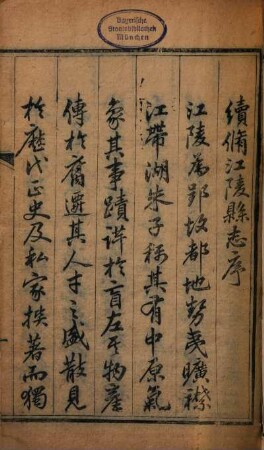 Bayerische
Staatsbibliothek
München
續脩江陵縣志序
江陵為郢故都地勢夷曠襟
江帶湖朱子稱其有中原氣
象其事蹟詳於盲左其物產
傳於舊遷其人才之盛散見
於歷代正史及私家撰著而獨